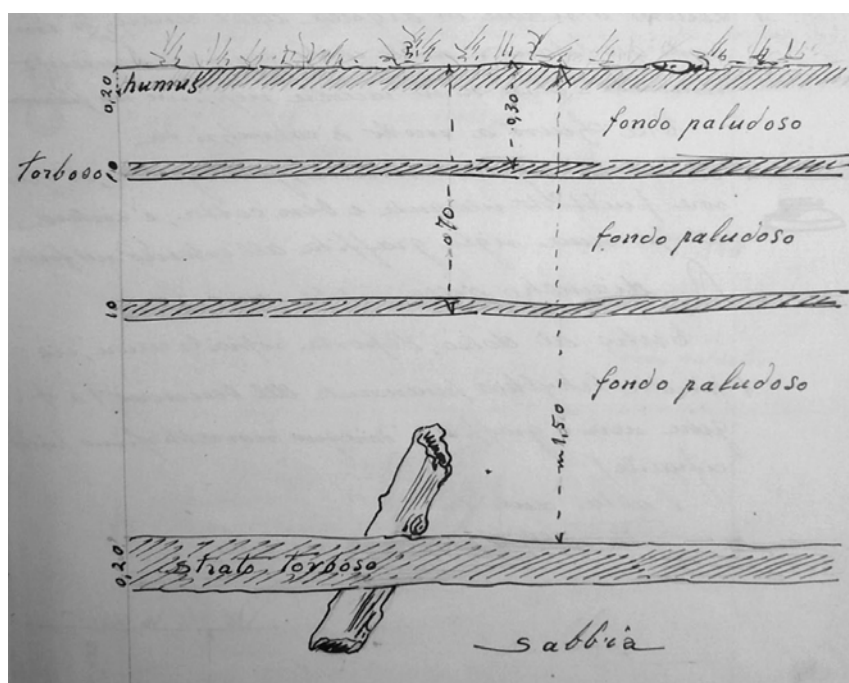 0,20
humus
0,30
fondo paludoso
Torboso
10
0,70
fondo paludoso
10
fondo paludoso
m 1,50
0,20
strato torboso
sabbia